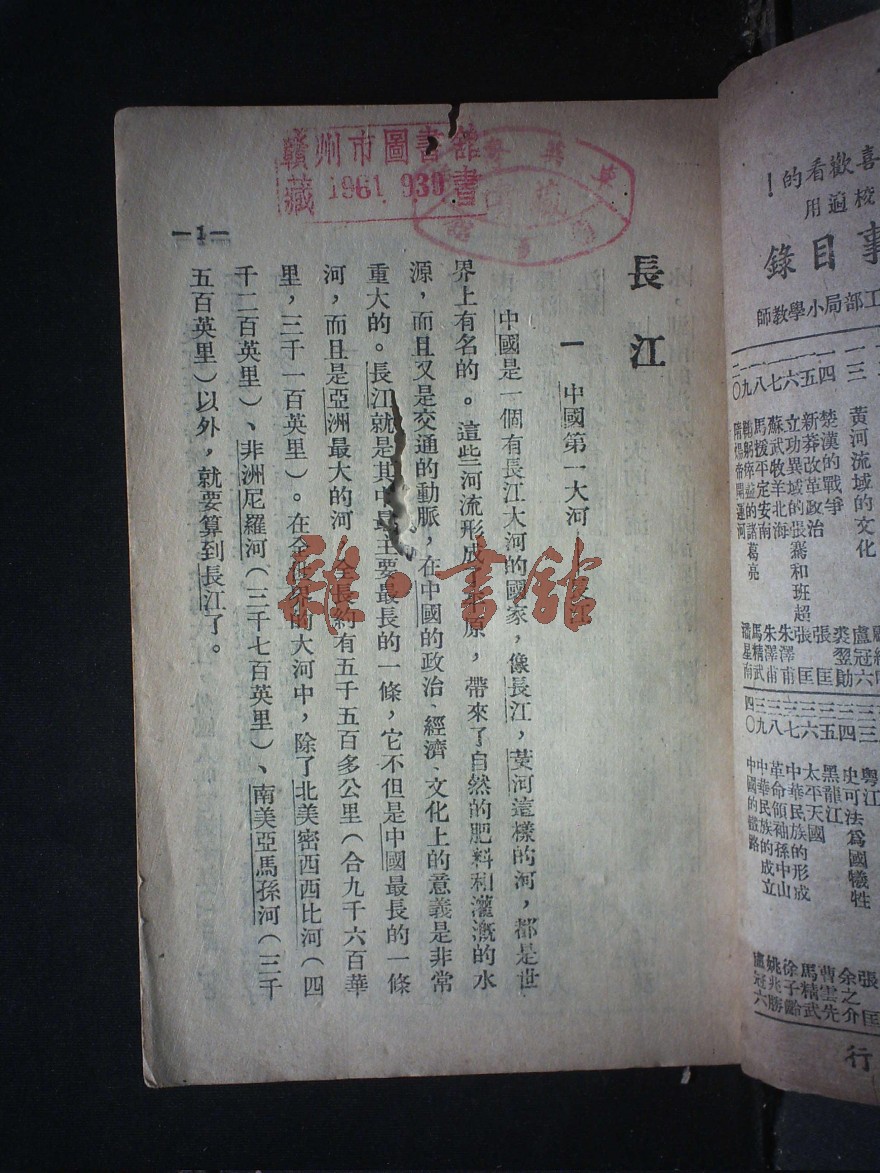 喜歡看的！
校適用
事目錄
工部局小學教師
黄河流域的文化
楚漢的戰爭
新莽改革政治
立功異域的張騫和班超
蘇武牧羊北海
馬援平定安南
的諸葛亮
隋煬帝開運河
盧冠六
裘翌勛
張匡
張匡
朱澤甫
朱澤甫
馬精武
潘星南
粤江
史可法爲國犧牲
黑龍江
太平天國
中華民族的形成
革命領袖孫中山
的成立
中國的鐵路
張匡
余之介
曹雲先
馬精武
徐子齡
姚兆勝
盧冠六
行
贛州市圖書館
藏 1961 930 書
長江
一 中國第一大河——長江
中國是一個有長江大河的國家，像長江，黄河這樣的河，都是世
界上有名的。這些河流形成了平原，帶來了自然的肥料和灌漑的水
源，而且又是交通的動脈，在中國的政治、經濟、文化上的意義是非常
重大的。長江就是其中最主要最長的一條，它不但是中國最長的一條
河，而且是亞洲最大的河，全長約有五千五百多公里（合九千六百華
里，三千一百英里）。在全世界的大河中，除了北美密西西比河（四
千二百英里）、非洲尼羅河（三千七百英里）、南美亞馬孫河（三千
五百英里）以外，就要算到長江了。
—1—
雜·書館